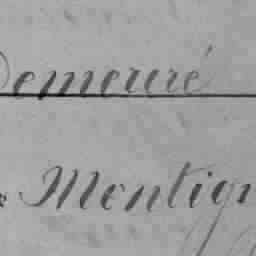 Demeuré
Montign